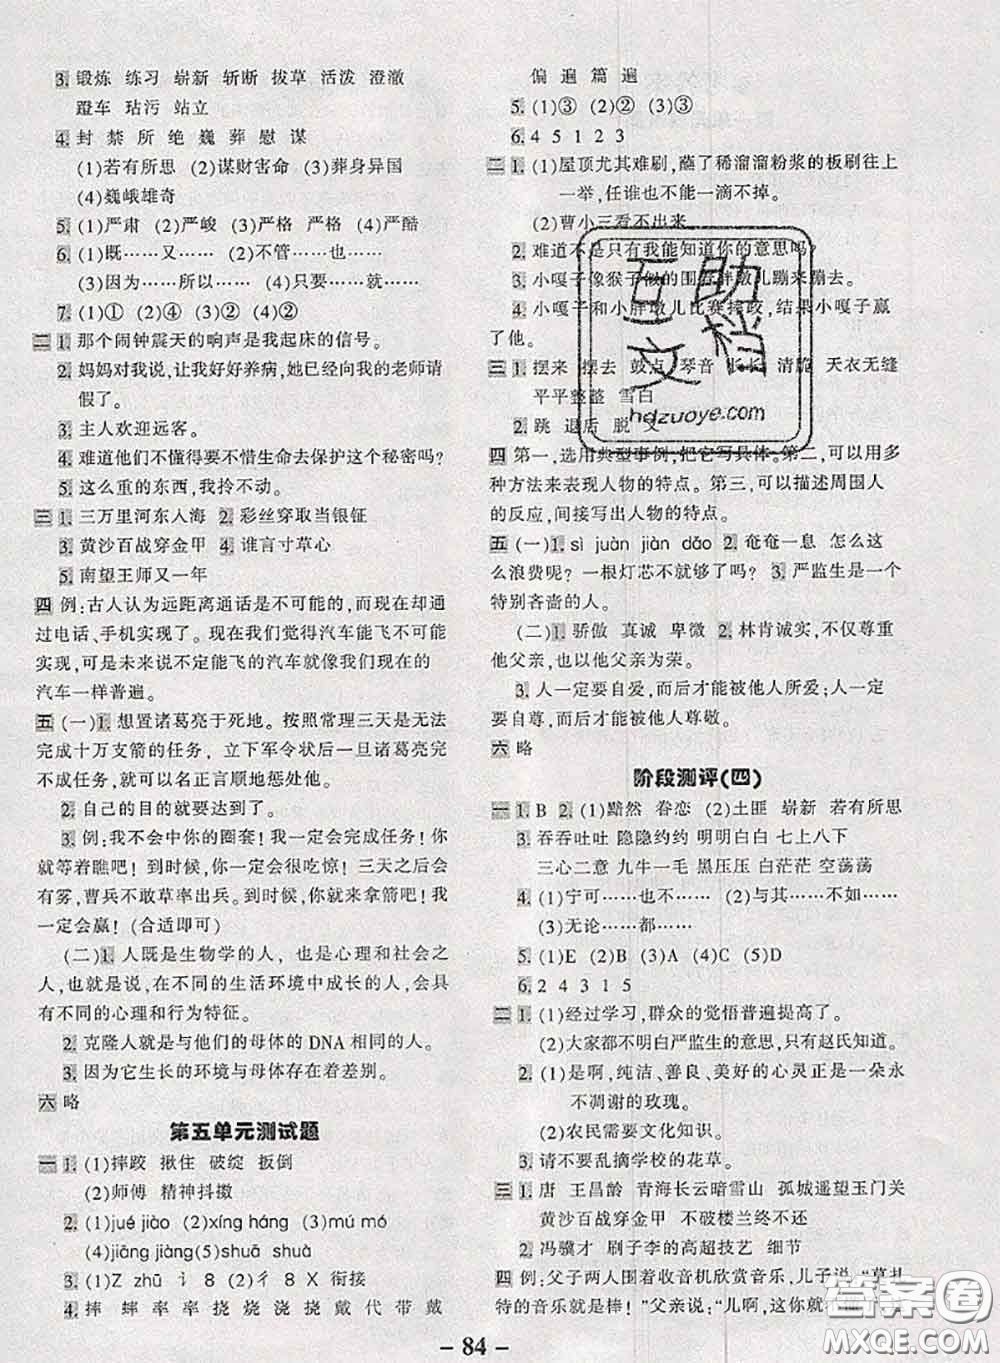 3. 锻炼 练习 崭新 斩断 拔草 活泼 澄澈
蹬车 玷污 站立
4. 封 禁 所 绝 巍 葬 慰 谋
(1)若有所思 (2)谋财害命 (3)葬身异国
(4)巍峨雄奇
5. (1)严肃 (2)严峻 (3)严格 严格 (4)严酷
6. (1)既……又…… (2)不管……也……
(3)因为……所以…… (4)只要……就……
7. (1)① (2)④ (3)② (4)②
二 1. 那个闹钟震天的响声是我起床的信号。
2. 妈妈对我说,让我好好养病,她已经向我的老师请
假了。
3. 主人欢迎远客。
4. 难道他们不懂得要不惜生命去保护这个秘密吗?
5. 这么重的东西,我拎不动。
三 1. 三万里河东入海 2. 彩丝穿取当银钲
3. 黄沙百战穿金甲 4. 谁言寸草心
5. 南望王师又一年
四 例:古人认为远距离通话是不可能的,而今却可以通
过电话、手机实现了。现在我们觉得汽车能飞不可能
实现,可是未来说不定能飞的汽车就像我们现在的
汽车一样普遍。
五 (一)1. 想置诸葛亮于死地。按照常理三天是无法
完成十万支箭的任务, 立下军令状后一旦诸葛亮完
不成任务,就可以名正言顺地惩处他。
2. 自己的目的就要达到了。
3. 例:我不会中你的圈套! 我一定会完成任务! 你
就等着瞧吧! 到时候,你一定会很吃惊! 三天之后会
有雾,曹兵不敢草率出兵。到时候,你就来拿箭吧! 我
一定会赢! (合适即可)
(二)1. 人既是生物学的人, 也是心理和社会之
人,也就是说,在不同的生活环境中成长起来的人,会
具有不同的心理和行为特征。
2. 克隆人就是与他们的母体的 DNA 相同的人。
3. 因为它生长的环境与母体存在着差别。
六 略
第五单元测试题
一 1. (1)摔跤 揪住 破绽 扳倒
(2)师傅 精神抖擞
2. (1)jué jiào (2)xíng háng (3)mú mó
(4)jiāng jiàng(5)shuā shuà
3. (1)Z zhū 讠 8 (2)彳 8 X 衔接
4. 摔 蟀 率 率 挠 烧 浇 挠 戴 代 带 戴
偏 遍 篇 遍
5. (1)③ (2)② (3)③
6. 4 5 1 2 3
二 1. (1)屋顶尤其难刷,蘸了稀溜溜粉浆的板刷往上
一举,任谁也不能一滴不掉。
(2)曹小三看不出来。
2. 难道不是只有我能知道你的意思吗?
3. 小嘎子像猴子似的围着胖墩儿蹦来蹦去。
4. 小嘎子和小胖墩儿比赛摔跤,结果小嘎子赢
了他。
三 1. 摆来 摆去 鼓点 琴音 长长 清脆 天衣无缝
平平整整 雪白
2. 跳 退后 脱 又
四 第一,选用典型事例,把它写具体。第二,可以用多
种方法来表现人物的特点。第三,可以描述周围人
的反应,间接写出人物的特点。
五 (一)1. sì juàn jiàn dǎo 2. 奄奄一息 怎么这
么浪费呢? 一根灯芯不就够了吗? 3. 严监生是一个
特别吝啬的人。
(二)1. 骄傲 真诚 卑微 2. 林肯诚实,不仅尊重
他父亲,也以他父亲为荣。
3. 人一定要自爱,而后才能被他人所爱;人一定
要自尊,而后才能被他人尊敬。
六 略
阶段测评(四)
一 1. B 2. (1)黯然 眷恋 (2)土匪 崭新 若有所思
3. 吞吞吐吐 隐隐约约 明明白白 七上八下
三心二意 九牛一毛 黑压压 白茫茫 空荡荡
4. (1)宁可……也不…… (2)与其……不如……
(3)无论……都……
5. (1)E (2)B (3)A (4)C (5)D
6. 2 4 3 1 5
二 1. (1)经过学习,群众的觉悟普遍提高了。
(2)大家都不明白严监生的意思,只有赵氏知道。
2. (1)是啊,纯洁、善良、美好的心灵正是一朵永
不凋谢的玫瑰。
(2)农民需要文化知识。
3. 请不要乱摘学校的花草。
三 1. 唐 王昌龄 青海长云暗雪山 孤城遥望玉门关
黄沙百战穿金甲 不破楼兰终不还
2. 冯骥才 刷子李的高超技艺 细节
四 例:父子两人围着收音机欣赏音乐,儿子说:“莫扎
特的音乐就是棒! ”父亲说:“儿啊,这你就
- 84 -
互助
文档
hdzuoye.com
答案圈
MXQE.COM